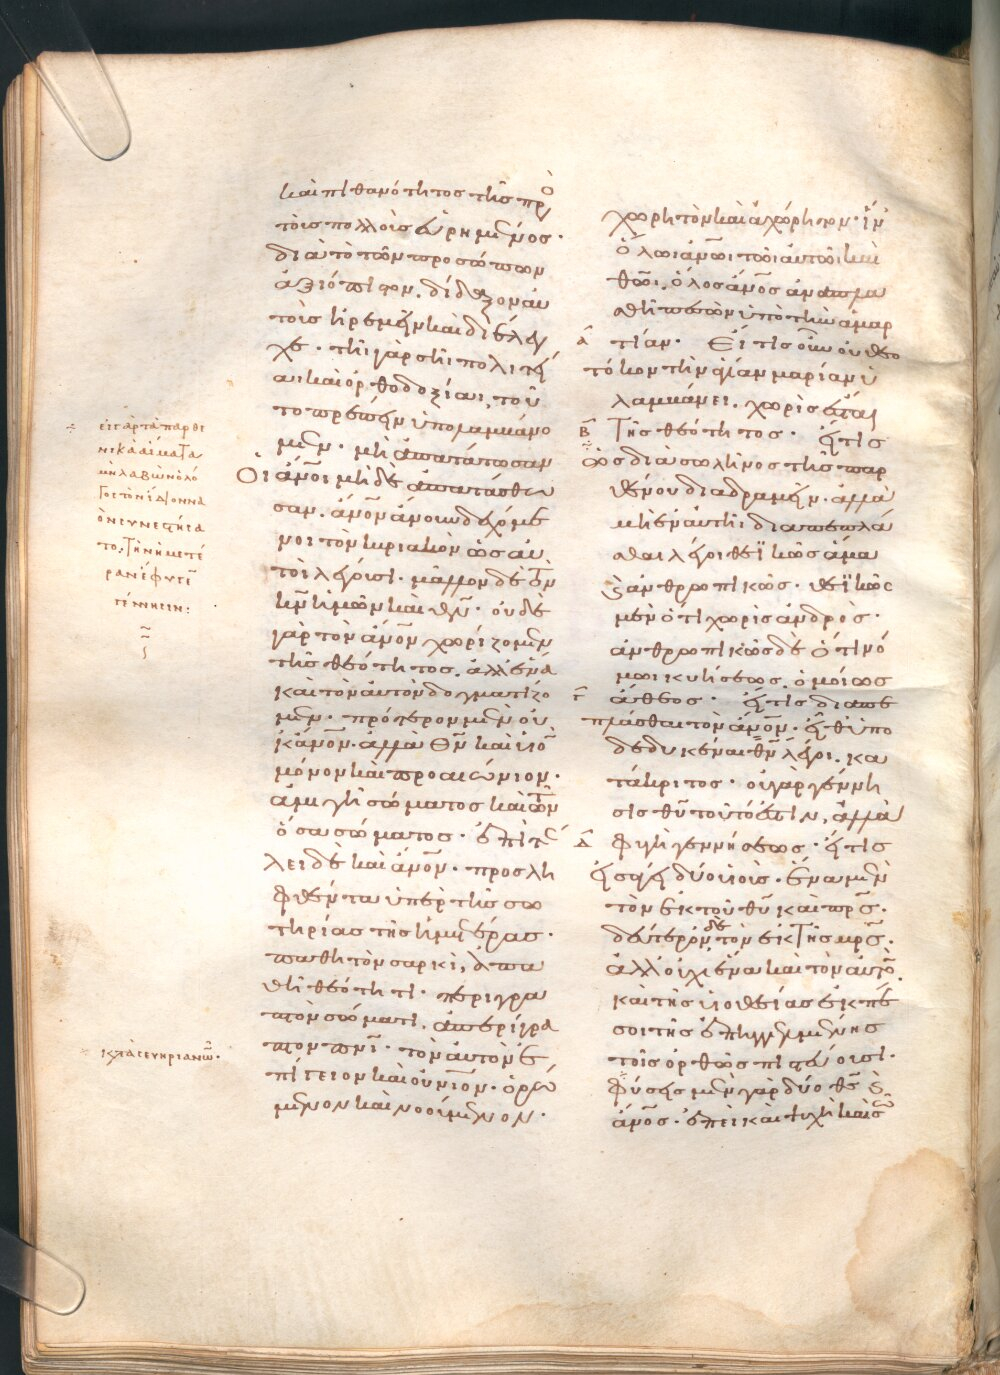 καὶ πιθανότητος τῆς πρὸ
τοῖς πολλοῖς εἰρημένος·
διὰ τὸ τῶν προσώπων
ἀξιόπιστον. δίδαξον αὐ
τοὶς
χε· τῆι γὰρ σῆι πολιτεί
αι καὶ ὀρθοδοξίαι τοῦ
το πρέπειν ὑπολαμβάνο
μεν· μὴ ἀπατάτωσαν
Οἱ ἄνοι μὴ δὲ ἀπατάσθω
σαν. ἄνον ἄνουν δεχόμε
νοι τὸν κυριακὸν ὡς αὐ
τοὶ λέγουσι. μᾶλλον δὲ τὸν
κν ἡμῶν καὶ θν· οὐδὲ
γὰρ τὸν ἄνον χωρίζομεν
τῆς θεότητος. ἀλλ ἕνα
καὶ τὸν αὐτὸν δογματίζο
μεν. πρότερον μὲν οὐ
κ ἄνον. ἀλλὰ θν καὶ υἱὸ
μόνον καὶ προαιώνιον·
ἀμιγῆ σώματος καὶ τῶν
ὅσα σώματος· ἐπὶ τέ
λει δὲ καὶ ἄνον. προσλη
φθέντα ὑπὲρ τῆς σω
τηρίας τῆς ἡμετέρας·
παθητὸν σαρκὶ, ἀπα
θῆ θεότητι· περιγρα
πτὸν σώματι. ἀπερίγρα
πτον πνι· τὸν αὐτὸν ἐ
πίγειον καὶ οὐνιον. ὁρώ
μενον καὶ νοούμενον·
χωρητὸν καὶ ἀχώρητον· ἵν
ὅλωι ἀνωι τῶι αὐτῶι καὶ
θῶι. ὅλος ἄνος ἀναπλα
σθῆι πεσὼν ὑπὸ τὴν ἁμαρ
Α τίαν· Εἴ τις οὖν οὐ θεο
τόκον τὴν ἁγίαν μαρίαν ὑ
λαμβάνει. χωρίς ἐστι
Β τῆς θεότητος· εἴ τις
ὡς διὰ σωλῆνος τῆς παρ
θένου διαδραμεῖν. ἀλλὰ
μὴ ἐν αὐτῆι διαπεπλά
σθαι λέγοι θεϊκῶς ἅμα
καὶ ἀνθρωπικῶς· θεϊκῶς
μὲν ὅτι χωρὶς ἀνδρός·
ἀνθρωπικῶς δὲ ὅτι νό
μωι κυήσεως. ὁμοίως
Γ ἄθεος· εἴ τις διαπε
πλάσθαι τὸν ἄνον. εἶθ ὑπο
δεδυκέναι θν λέγοι. κα
τάκριτος· οὐ γὰρ γέννη
σις θυ τοῦτό ἐστιν, ἀλλὰ
Δ φυγὴ γεννήσεως· εἴ τις
εἰσάγει δύο υἱοὺς. ἕνα μὲν
τὸν ἐκ τοῦ θυ καὶ πρς.
δεύτερον δὲ τὸν ἐκ τῆς μρς.
ἀλλ οὐχὶ ἕνα καὶ τὸν αὐτὸ.
καὶ τῆς υἱοθεσίας ἐκπέ
σοι τῆς ἐπηγγελμένης
τοῖς ὀρθῶς πιστεύουσι.
φύσεις μὲν γὰρ δύο θς καὶ
ἄνος. ἐπεὶ καὶ ψυχὴ καὶ σῶ
εἰς ἄρτα παρθε
νικὰ αἵματα
μὴ λαβὼν ὁ λό
γος τὸν ἴδιον να
ὸν συνεστήσα
το. τὴν ἡμετέ
ραν
γέννησιν:
κατὰ νεστοριανῶ.